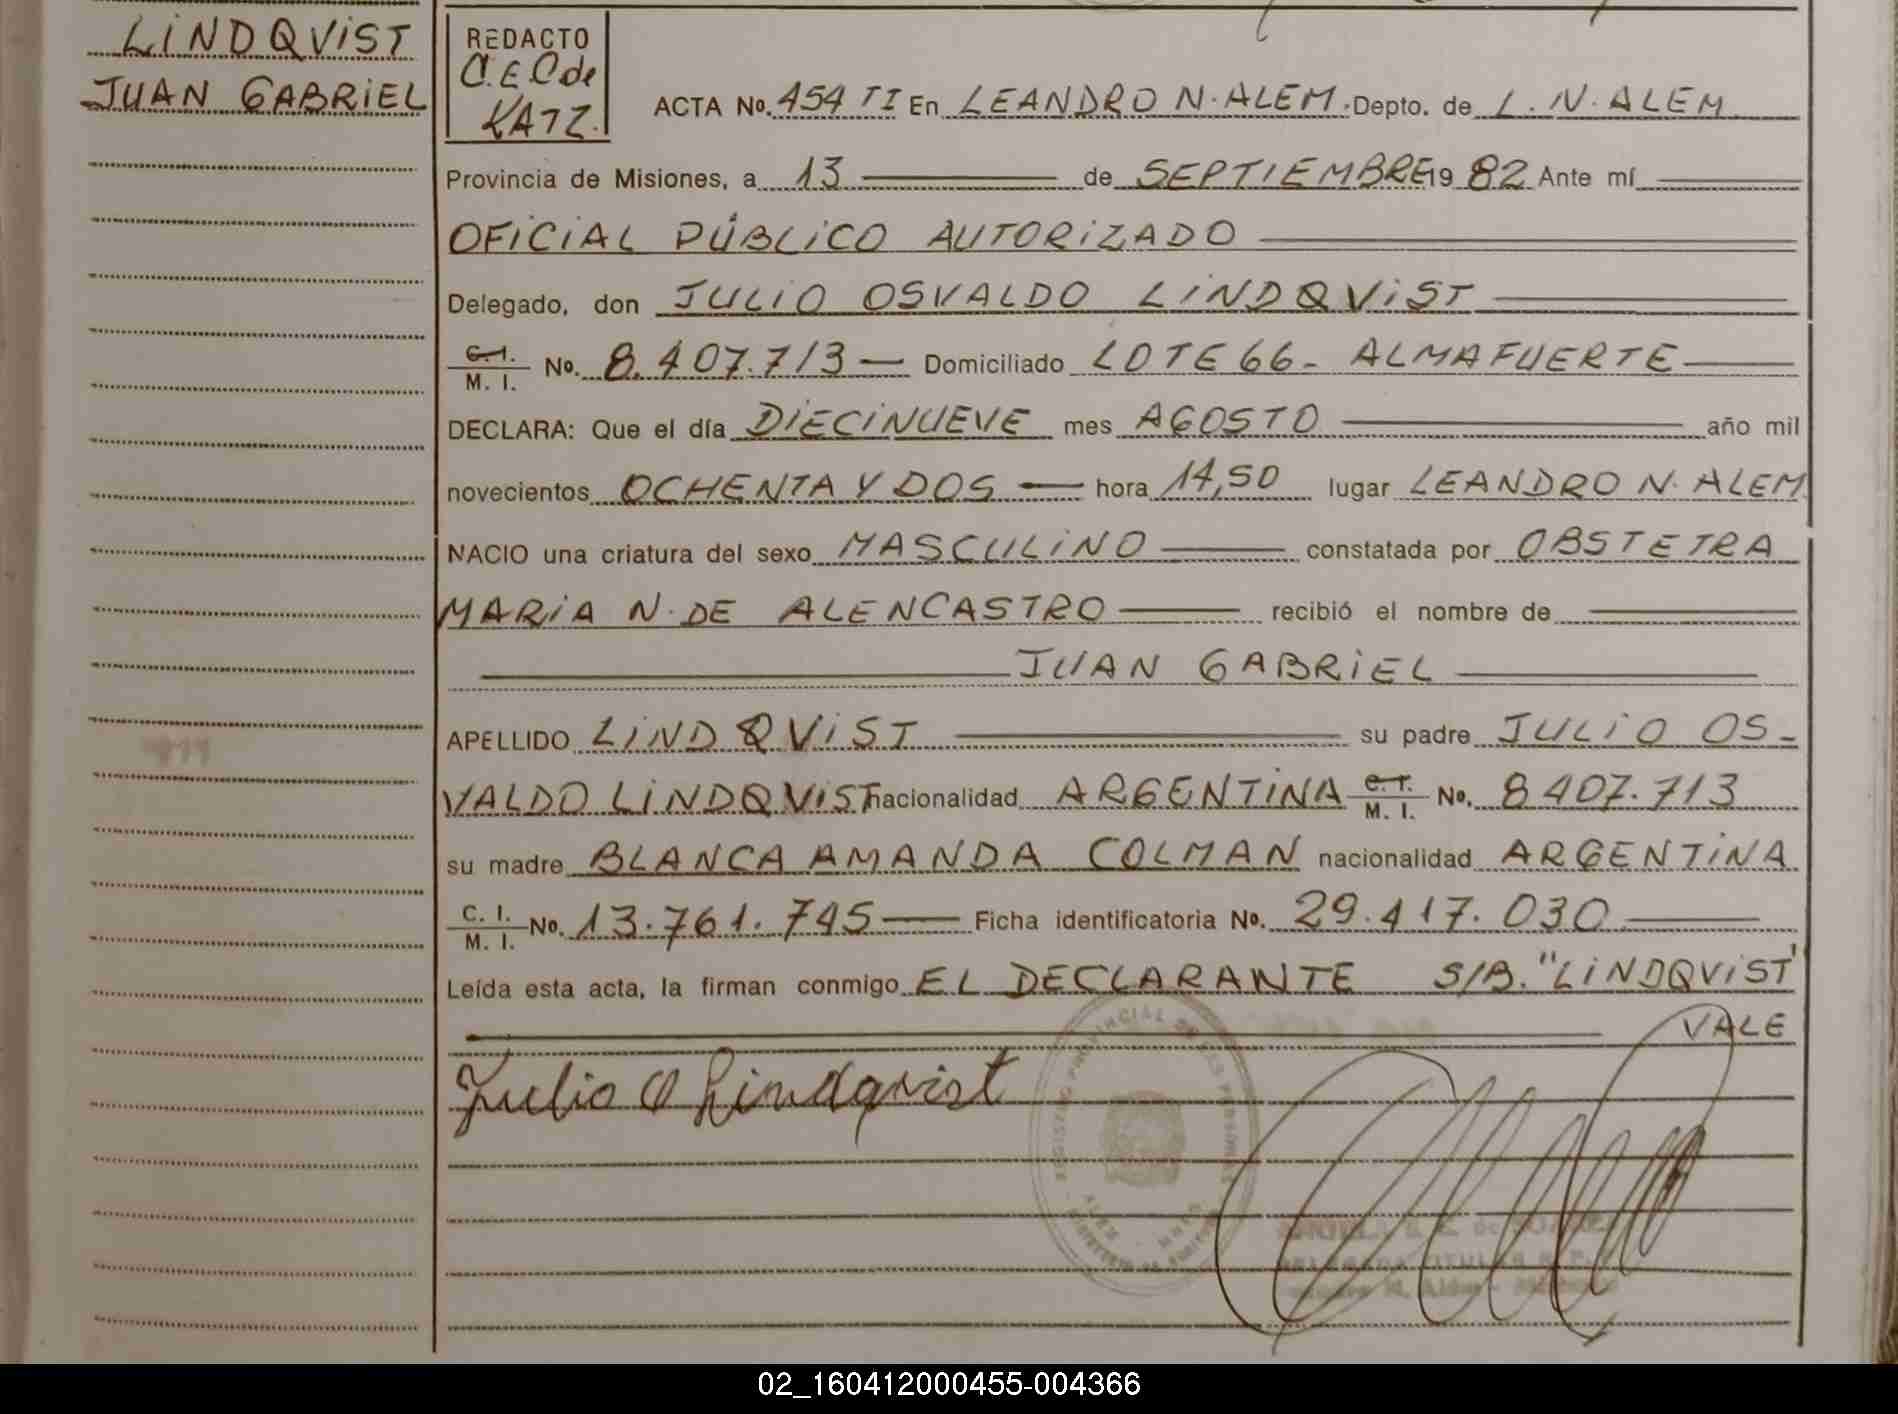 LINDQVIST
JUAN GABRIEL
REDACTO
C.E.C de
KATZ.
ACTA No. 454 TI En LEANDRO N. ALEM. Depto. de L. N. ALEM
Provincia de Misiones, a 13 de SEPTIEMBRE 19 82 Ante mí
OFICIAL PÚBLICO AUTORIZADO
Delegado, don JULIO OSVALDO LINDQVIST
C. I. / M. I. No. 8.407.713 — Domiciliado LOTE 66 - ALMAFUERTE
DECLARA: Que el día DIECINUEVE mes AGOSTO año mil
novecientos OCHENTA Y DOS — hora 14,50 lugar LEANDRO N. ALEM
NACIO una criatura del sexo MASCULINO constatada por OBSTETRA
MARIA N. DE ALENCASTRO recibió el nombre de
JUAN GABRIEL
APELLIDO LINDQVIST su padre JULIO OS-
VALDO LINDQVIST nacionalidad ARGENTINA C. I. / M. I. No. 8407.713
su madre BLANCA AMANDA COLMAN nacionalidad ARGENTINA
C. I. / M. I. No. 13.761.745 — Ficha identificatoria No. 29.417.030
Leída esta acta, la firman conmigo EL DECLARANTE S/B. "LINDQVIST"
VALE
Julio O Lindqvist
02_160412000455-004366